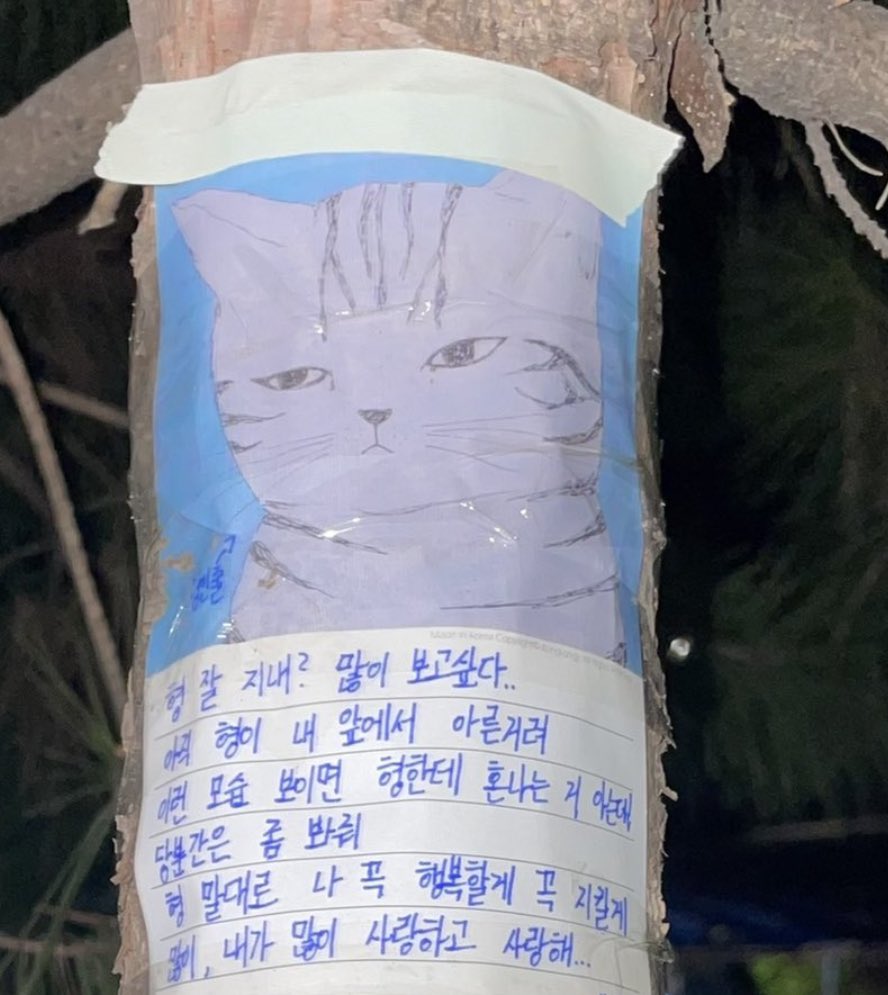 Made in Korea Copyright
형 잘 지내? 많이 보고싶다..
아직 형이 내 앞에서 아른거려
이런 모습 보이면 형한테 혼나는 거 아는데
당분간은 좀 봐줘
형 말대로 나 꼭 행복할게 꼭 지킬게
많이, 내가 많이 사랑하고 사랑해...